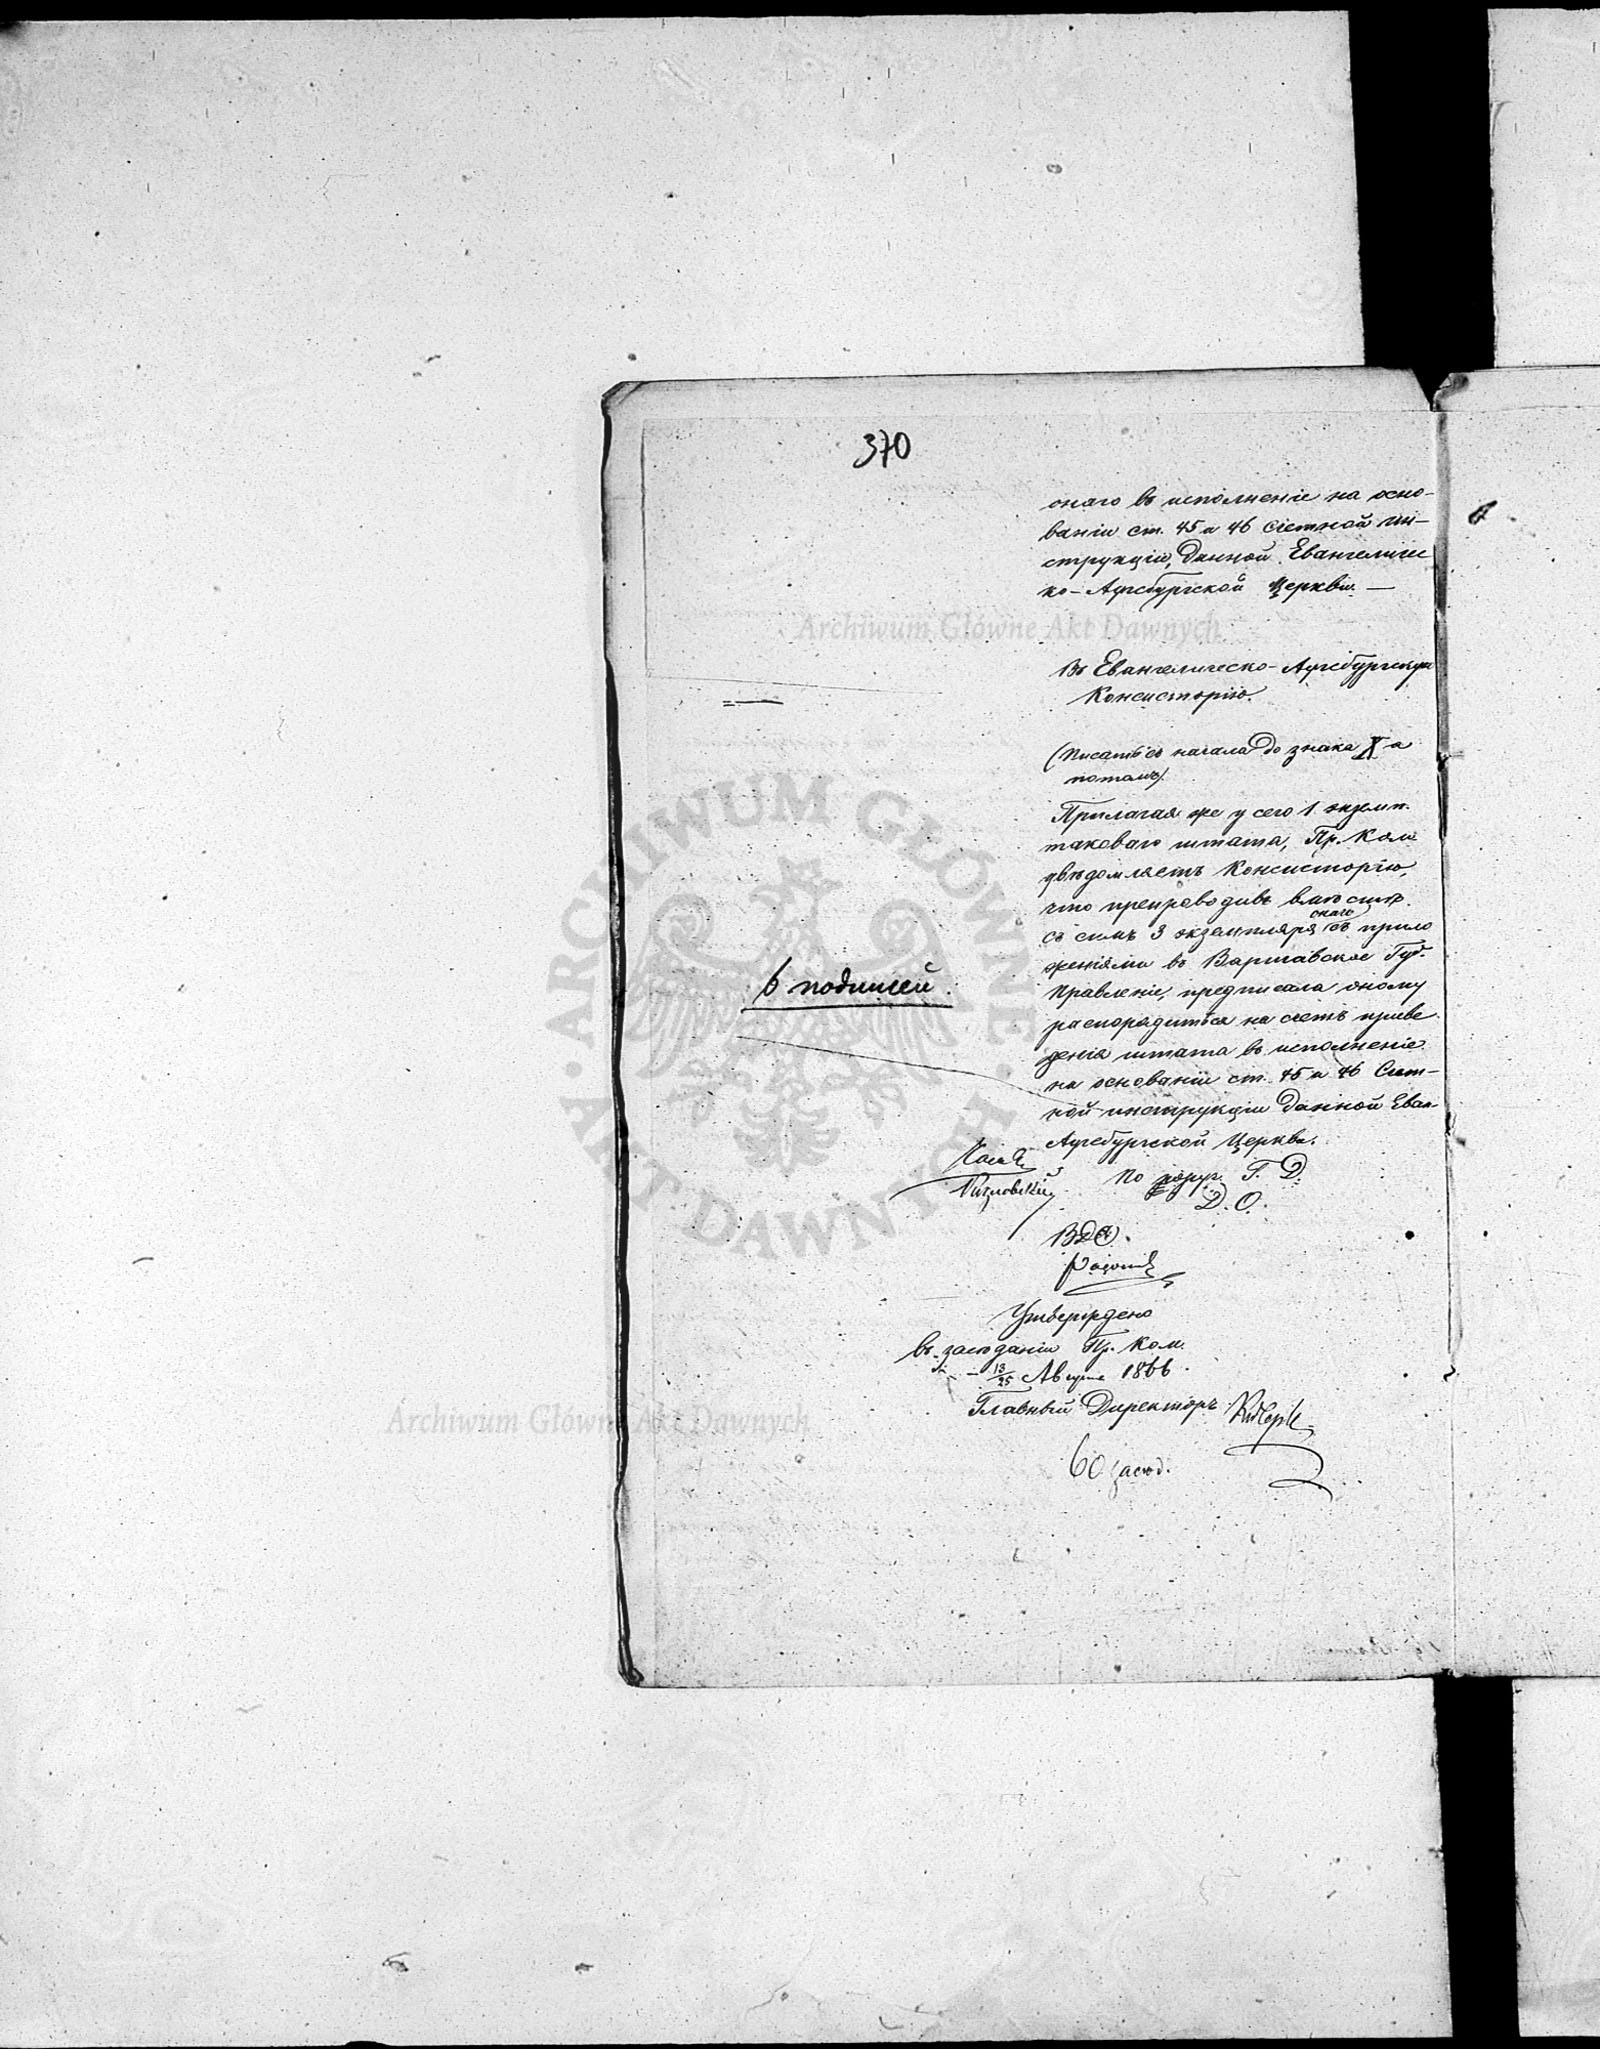 370
онаго въ исполненіе на осно-
ваніи ст. 45 и 46 Счетной ин-
струкціи, данной Евангеличес
ко-Аугсбургской Церкви. —
Archiwum Główne Akt Dawnych
Въ Евангелическо-Аугсбургскую
Консисторію.
(Писать съ начала до знака X а
потомъ)
Прилагая же у сего 1 экземп.
таковаго штата, Пр. Ком.
увѣдомляетъ Консисторію,
что препроводивъ вмѣстѣ
онаго
съ симъ 3 экземпляра съ прило
женіями въ Варшавское Губ.
Правленіе, предписала оному
распорядиться на счетъ приве
денія штата въ исполненіе
на основаніи ст. 45 и 46 Счет-
ной инструкціи данной Еван-
Аугсбургской Церкви.
6 подписей
ARCHIWUM GŁÓWNE AKT DAWNYCH
По поруч. Г. Д.
Д. О.
Утверждено
въ засѣданіи Пр. Ком.
13/25 Августа 1866.
Главный Директоръ
Archiwum Główne Akt Dawnych
60 засѣд.